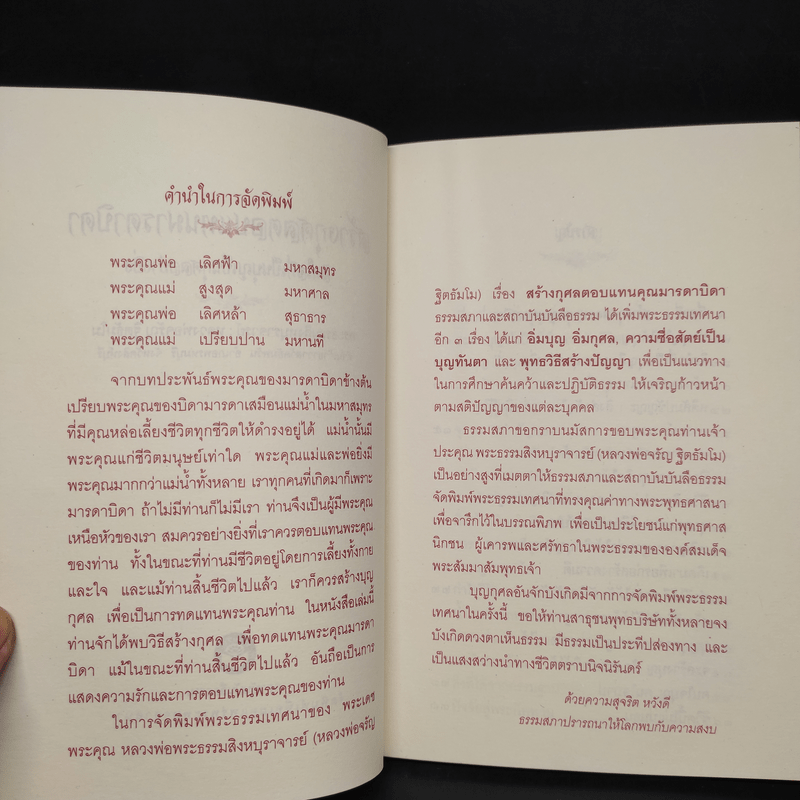 คำนำในการจัดพิมพ์
พระคุณพ่อ เลิศฟ้า มหาสมุทร
พระคุณแม่ สูงสุด มหาศาล
พระคุณพ่อ เลิศหล้า สุธาธาร
พระคุณแม่ เปรียบปาน มหานที
จากบทประพันธ์พระคุณของมารดาบิดาข้างต้น
เปรียบพระคุณของบิดามารดาเสมือนแม่น้ำในมหาสมุทร
ที่มีคุณหล่อเลี้ยงชีวิตทุกชีวิตให้ดำรงอยู่ได้ แม่น้ำนั้นมี
พระคุณแก่ชีวิตมนุษย์เท่าใด พระคุณแม่และพ่อยิ่งมี
พระคุณมากกว่าแม่น้ำทั้งหลาย เราทุกคนที่เกิดมาก็เพราะ
มารดาบิดา ถ้าไม่มีท่านก็ไม่มีเรา ท่านจึงเป็นผู้มีพระคุณ
เหนือหัวของเรา สมควรอย่างยิ่งที่เราควรตอบแทนพระคุณ
ของท่าน ทั้งในขณะที่ท่านมีชีวิตอยู่โดยการเลี้ยงทั้งกาย
และใจ และแม้ท่านสิ้นชีวิตไปแล้ว เราก็ควรสร้างบุญ
กุศล เพื่อเป็นการทดแทนพระคุณท่าน ในหนังสือเล่มนี้
ท่านจักได้พบวิธีสร้างกุศล เพื่อทดแทนพระคุณมารดา
บิดา แม้ในขณะที่ท่านสิ้นชีวิตไปแล้ว อันถือเป็นการ
แสดงความรักและการตอบแทนพระคุณของท่าน
ในการจัดพิมพ์พระธรรมเทศนาของ พระเดช
พระคุณ หลวงพ่อพระธรรมสิงหบุราจารย์ (หลวงพ่อจรัญ
ฐิตธัมโม) เรื่อง สร้างกุศลตอบแทนคุณมารดาบิดา
ธรรมสภาและสถาบันบันลือธรรม ได้เพิ่มพระธรรมเทศนา
อีก ๓ เรื่อง ได้แก่ อิ่มบุญ อิ่มกุศล, ความซื่อสัตย์เป็น
บุญทันตา และ พุทธวิธีสร้างปัญญา เพื่อเป็นแนวทาง
ในการศึกษาค้นคว้าและปฏิบัติธรรม ให้เจริญก้าวหน้า
ตามสติปัญญาของแต่ละบุคคล
ธรรมสภาขอกราบนมัสการขอบพระคุณท่านเจ้า
ประคุณ พระธรรมสิงหบุราจารย์ (หลวงพ่อจรัญ ฐิตธัมโม)
เป็นอย่างสูงที่เมตตาให้ธรรมสภาและสถาบันบันลือธรรม
จัดพิมพ์พระธรรมเทศนาที่ทรงคุณค่าทางพระพุทธศาสนา
เพื่อจารึกไว้ในบรรณพิภพ เพื่อเป็นประโยชน์แก่พุทธศาส
นิกชน ผู้เคารพและศรัทธาในพระธรรมขององค์สมเด็จ
พระสัมมาสัมพุทธเจ้า
บุญกุศลอันจักบังเกิดมีจากการจัดพิมพ์พระธรรม
เทศนาในครั้งนี้ ขอให้ท่านสาธุชนพุทธบริษัททั้งหลายจง
บังเกิดดวงตาเห็นธรรม มีธรรมเป็นประทีปส่องทาง และ
เป็นแสงสว่างนำทางชีวิตตราบนิจนิรันดร์
ด้วยความสุจริต หวังดี
ธรรมสภาปรารถนาให้โลกพบกับความสงบ